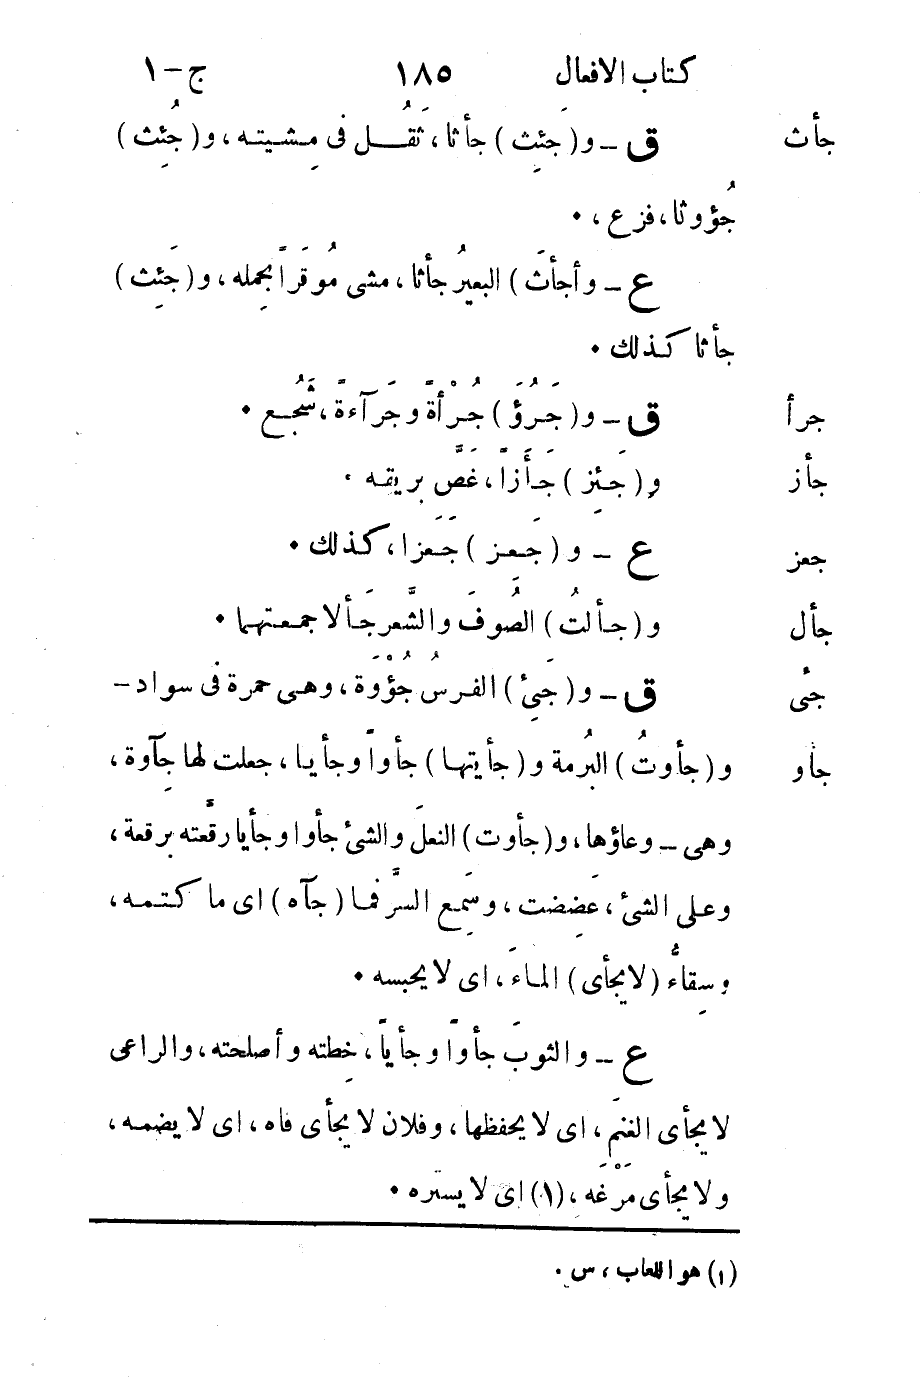 كتاب الافعال ١٨٥ ج-١
جأث ق ـ و( جَئِث ) جأثا، ثَقُـل فى مِشيتـه، و( جُئِث )
جُؤوثا، فزع، ٠
ع ـ وأجأثَ ) البعيرُ جأثا، مشى مُوقَراً بحِمله، و( جَئِث )
جأثا كـذلك ٠
جرأ ق ـ و( جَرُؤَ ) جُرْأةً وجَرَآءةً، شَجُع ٠
جأز و( جَئِز ) جَأَزاً، غَصَّ بريقه ٠
جعز ع ـ و ( جَعـز ) جَعَزا، كـذلك ٠
جأل و( جألتُ ) الصُّوفَ والشَّعرَ جَألا جمعـتهما ٠
جئى ق ـ و( جَئِىُ ) الفرسُ جُؤْوَة، وهـى حمرة فى سواد-
جأو و( جأوتُ ) البُرمة و( جأيتها ) جأواً وجأيـا، جعلت لها جِآوة،
وهى ـ وعاؤها، و( جأوت ) النعلَ والشئ جأوا وجأيا رقّعته برقعة،
وعلى الشئ، عَضِضت، وسَمِع السرَّ فما ( جآه ) اى ما كـتمـه،
وسِقاءٌ ( لا يجأى ) المـاءَ، اى لا يحبسه ٠
ع ـ والثوبَ جأواً وجأياً، خِطته وأصلحته، والراعى
لا يجأى الغنمَ، اى لا يحفظها، وفلان لا يجأى فاه، اى لا يضمـه،
ولا يجأى مَرْغَه، (١) اى لا يستره ٠
(١) هو اللعاب، س ٠